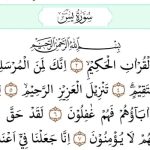 سُورَةُ يسٓ
بِسْمِ ٱللَّهِ ٱلرَّحْمَٰنِ ٱلرَّحِيمِ
ٱلْقُرْءَانِ ٱلْحَكِيمِ ٢ إِنَّكَ لَمِنَ ٱلْمُرْسَلِ
تَقِيمٍ ٤ تَنزِيلَ ٱلْعَزِيزِ ٱلرَّحِيمِ ٥
ءَابَآؤُهُمْ فَهُمْ غَٰفِلُونَ ٦ لَقَدْ حَقَّ
هُمْ لَا يُؤْمِنُونَ ٧ إِنَّا جَعَلْنَا فِىٓ أَعْنَ